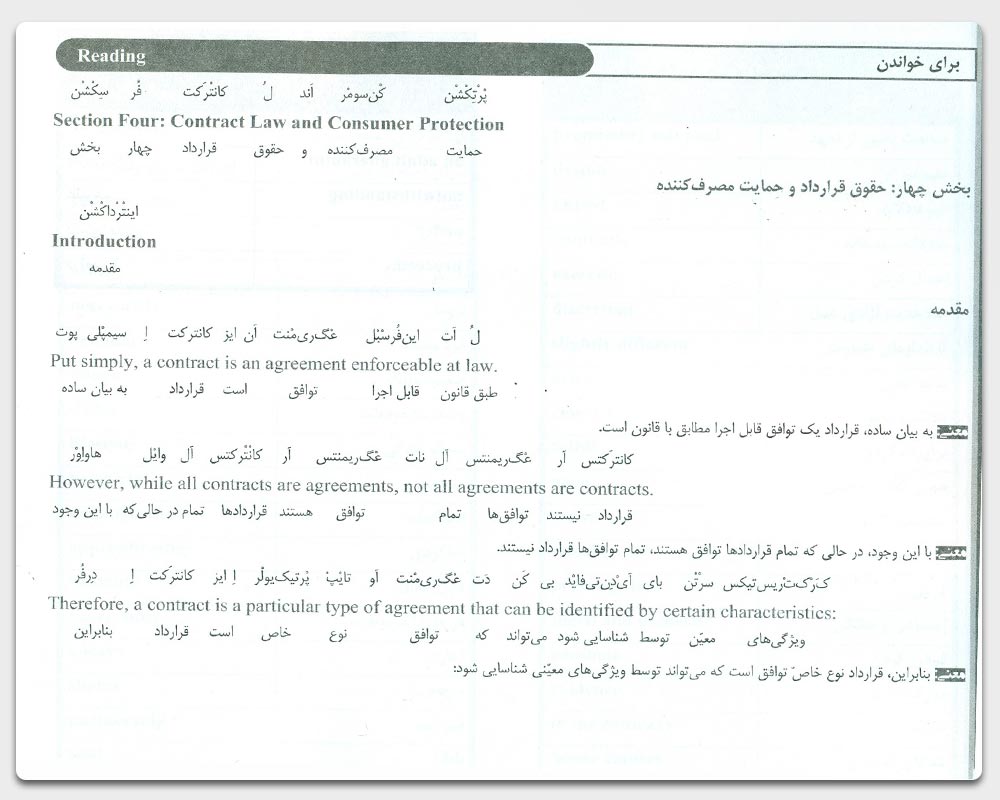 Reading
برای خواندن
سِکْشْن فُر کانتْرَکت لُ اَند کَن‌سومْر پْرُتِکْشْن
Section Four: Contract Law and Consumer Protection
بخش چهار قرارداد حقوق و مصرف‌کننده حمایت
بخش چهار: حقوق قرارداد و حمایت مصرف‌کننده
اینتْرْداکْشْن
Introduction
مقدمه
مقدمه
پوت سیمپْلی اِ کانترکت ایز اَن عَگری‌مْنت این‌فُرسْبْل اَت لُ
Put simply, a contract is an agreement enforceable at law.
به بیان ساده قرارداد است توافق قابل اجرا طبق قانون
به بیان ساده، قرارداد یک توافق قابل اجرا مطابق با قانون است.
هاواِوْر وایْل اُل کانْتْرکتس اَر عَگریمنتس نات اُل عَگریمنتس اَر کانترَکتس
However, while all contracts are agreements, not all agreements are contracts.
با این وجود در حالی‌که تمام قراردادها هستند توافق تمام توافق‌ها نیستند قرارداد
با این وجود، در حالی که تمام قراردادها توافق هستند، تمام توافق‌ها قرارداد نیستند.
دِرفُر اِ کانترکت ایز اِ پْرتیکیولْر تایْپ او عَگری‌مْنت دَت کَن بی آیْدِن‌تی‌فایْد بای سرْتْن
Therefore, a contract is a particular type of agreement that can be identified by certain characteristics:
بنابراین قرارداد است خاص نوع توافق که می‌تواند شناسایی شود توسط معیّن ویژگی‌های
بنابراین، قرارداد نوع خاصّ توافق است که می‌تواند توسط ویژگی‌های معیّنی شناسایی شود: